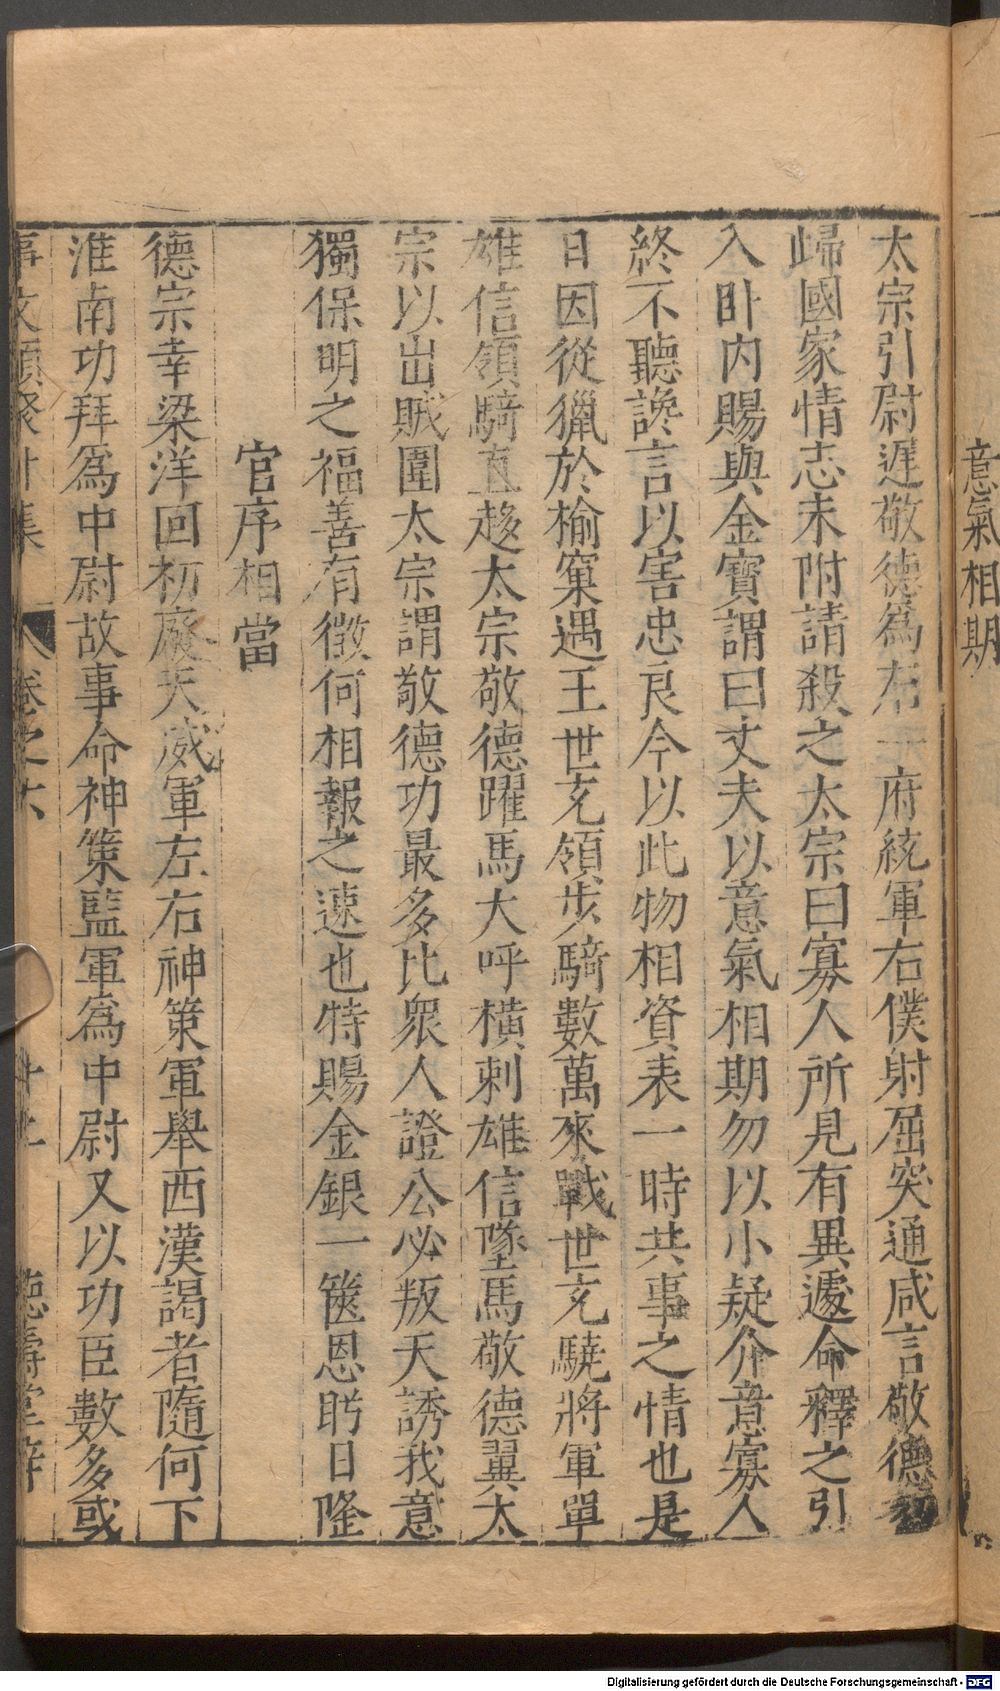 意氣相期
太宗引尉遲敬德爲右一府統軍右僕射屈突通咸言敬德初
歸國家情志未附請殺之太宗曰寡人所見有異遽命釋之引
入卧内賜與金寶謂曰丈夫以意氣相期勿以小疑介意寡人
終不聽讒言以害忠良今以此物相資表一時共事之情也是
日因從獵於榆窠遇王世充領步騎數萬來戰世充驍將軍單
雄信領騎直趍太宗敬德躍馬大呼橫刺雄信墜馬敬德翼太
宗以出賊圍太宗謂敬德功最多比衆人證公必叛天誘我意
獨保明之福善有徵何相報之速也特賜金銀一篋恩眄日隆
官序相當
德宗幸梁洋回初廢天威軍左右神策軍舉西漢謁者隨何下
淮南功拜爲中尉故事命神策監軍爲中尉又以功臣數多或
事文類聚外集
卷之六
德壽堂梓
Digitalisierung gefördert durch die Deutsche Forschungsgemeinschaft - DFG